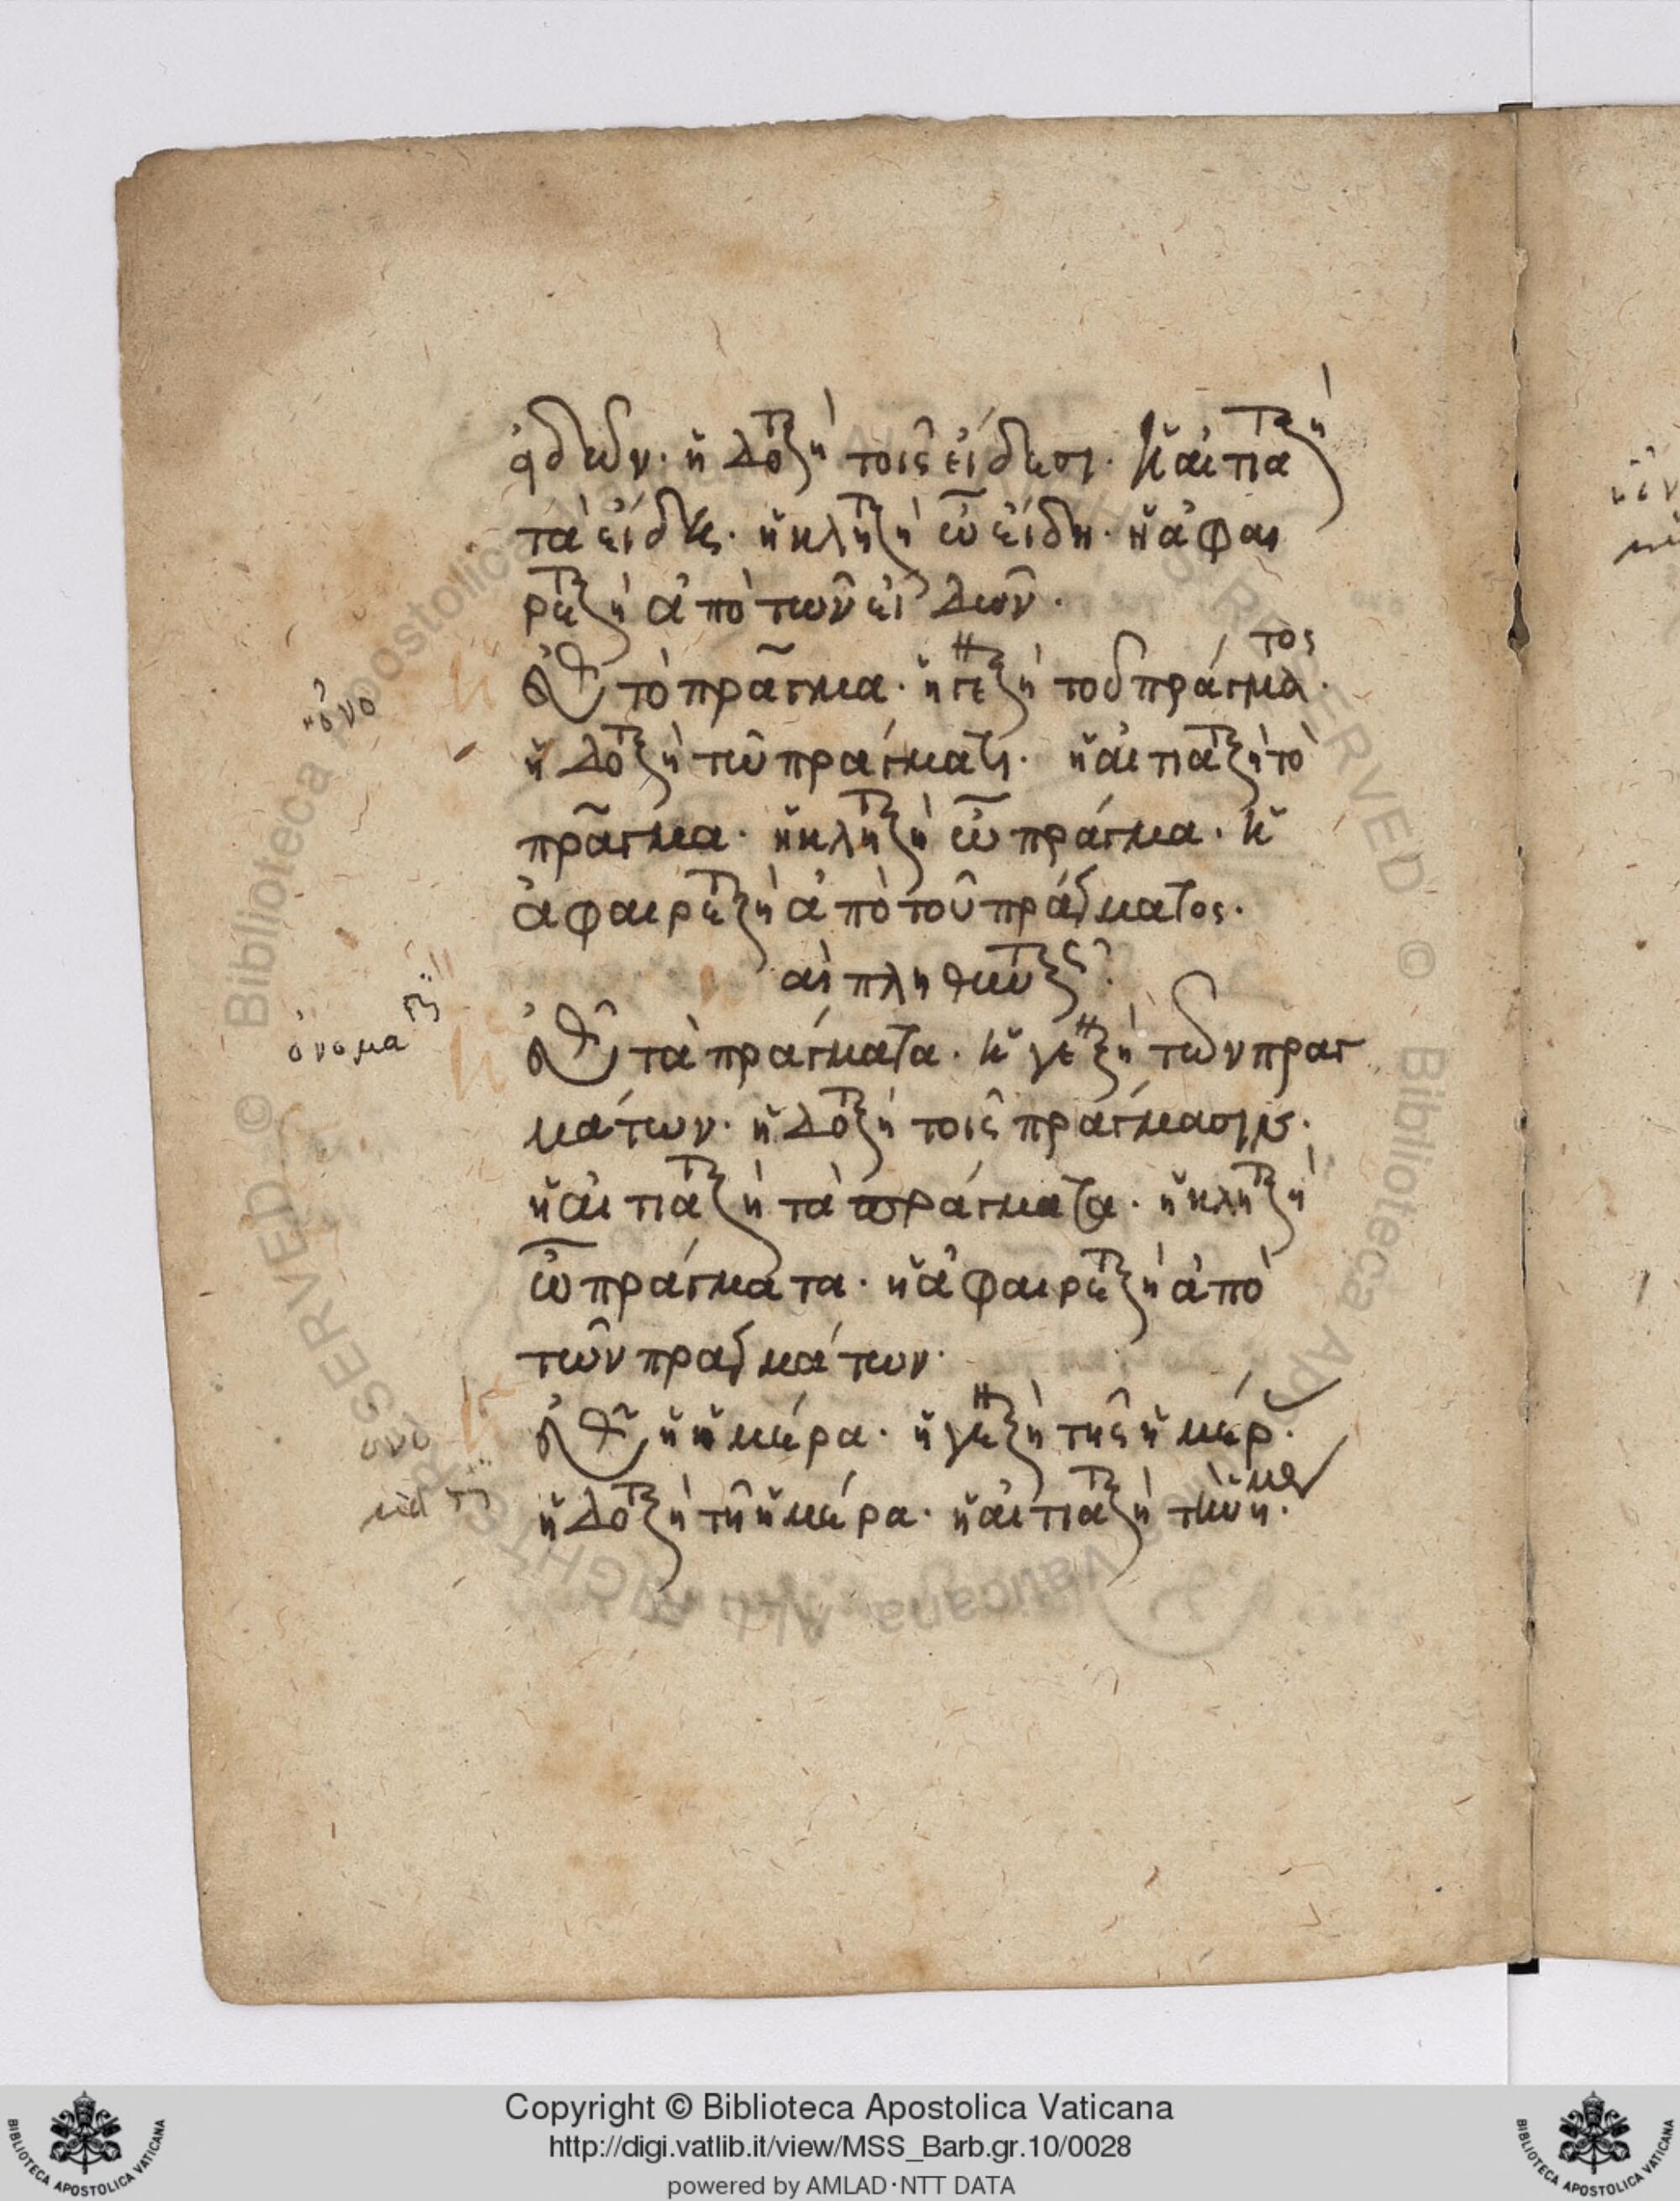 ἰδῶν. ἡ δοτικὴ τοῖς εἴδεσι. ἡ αἰτιατικὴ
τὰ εἴδη. ἡ κλητικὴ ὦ εἴδη. ἡ ἀφαι
ρετικὴ ἀπὸ τῶν εἰδῶν.
τὸ πρᾶγμα. ἡ γενικὴ τοῦ πράγματος.
ἡ δοτικὴ τῶ πράγματι. ἡ αἰτιατικὴ τὸ
πρᾶγμα. ἡ κλητικὴ ὦ πράγμα. ἡ
ἀφαιρετικὴ ἀπὸ τοῦ πράγματος.
τὰ πράγματα. ἡ γενικὴ τῶν πραγ
μάτων. ἡ δοτικὴ τοῖς πράγμασιν.
ἡ αἰτιατικὴ τὰ πράγματα. ἡ κλητικὴ
ὦ πράγματα. ἡ ἀφαιρετικὴ ἀπὸ
τῶν πραγμάτων.
ἡ ἡμέρα. ἡ γενικὴ τῆς ἡμέρ.
ἡ δοτικὴ τῆ ἡμέρα. ἡ αἰτιατικὴ τὴν ἡμέ
ὀνο
ὀνομα
Copyright © Biblioteca Apostolica Vaticana
http://digi.vatlib.it/view/MSS_Barb.gr.10/0028
powered by AMLAD·NTT DATA
BIBLIOTECA APOSTOLICA VATICANA
BIBLIOTECA APOSTOLICA VATICANA